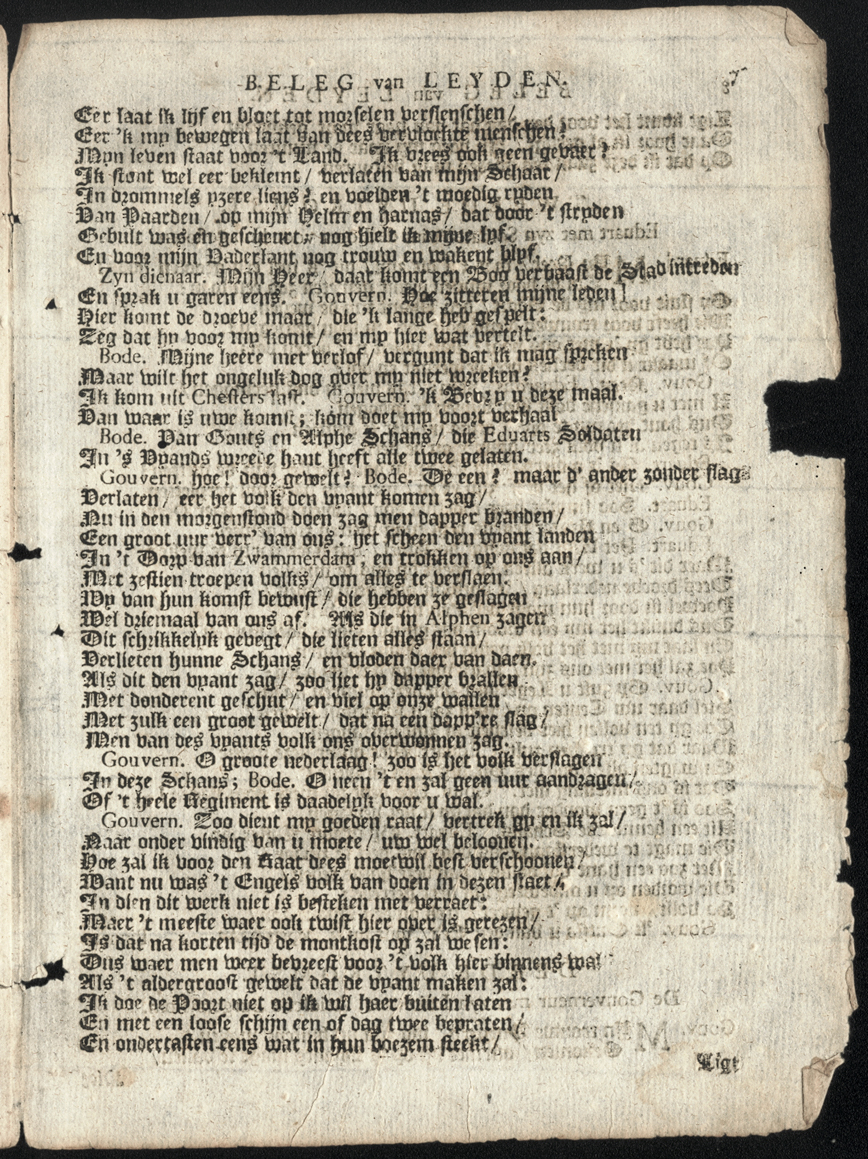 BELEG van LEYDEN. 7
Eer laat ik lijf en bloet tot morselen verslenschen/
Eer 'k my bewegen laat van dees vervlockte menschen?
Myn leven staat voor 't Land. Ik vrees ook geen gevaer?
Ik stont wel eer beklemt/ verlaten van mijn Schaar/
In drommels yzere liens? en voelden 't moedig ryden
Van Paarden/ op mijn Helm en harnas/ dat door 't stryden
Gebult was en gescheurt, nog hielt ik mijne lyf.
En voor mijn Vaderlant nog trouw en wakent blyf.
Zyn dienaar. Mijn Heer/ daar komt een Bod verbaast de Stad intreden
En sprak u garen eens. Gouvern. Hoe zitteren mijne leden!
Hier komt de droeve maar/ die 'k lange heb gespelt:
Zeg dat hy voor my komt/ en my hier wat vertelt.
Bode. Mijne heere met verlof/ vergunt dat ik mag spreken
Maar wilt het ongeluk dog over my niet wreeken?
Ik kom uit Chesters last. Gouvern. 'k Bevry u deze maal.
Van waar is uwe komst; kom doet my voort verhaal
Bode. Van Gouts en Alphe Schans/ die Eduarts Soldaten
In 's Vyands wreede hant heeft alle twee gelaten.
Gouvern. hoe! door gewelt? Bode. De een? maar d' ander zonder slag
Verlaten/ eer het volk den vyant komen zag/
Nu in den morgenstond doen zag men dapper branden/
Een groot uur verr' van ons: het scheen den vyant landen
In 't Dorp van Zwammerdam, en trokken op ons aan/
Met zestien troepen volks/ om alles te verslaen:
Wy van hun komst bewust/ die hebben ze geslagen
Wel driemaal van ons af. Als die in Alphen zagen
Dit schrikkelyk gevegt/ die lieten alles staan/
Verlieten hunne Schans/ en vloden daer van daen.
Als dit den vyant zag/ zoo liet hy dapper brallen
Met donderent geschut/ en viel op onze wallen
Met zulk een groot gewelt/ dat na een dapp're slag/
Men van des vyants volk ons overwonnen zag.
Gouvern. O groote nederlaag! zoo is het volk verslagen
In deze Schans; Bode. O neen 't en zal geen uur aandragen/
Of 't heele Regiment is daadelyk voor u wal.
Gouvern. Zoo dient my goeden raat/ vertrek gy en ik zal/
Naar onder vindig van u moete/ uw wel beloonen.
Hoe zal ik voor den Raat dees moetwil best verschoonen/
Want nu was 't Engels volk van doen in dezen staet/
In dien dit werk niet is besteken met verraet:
Maer 't meeste waer ook twist hier over is gerezen/
Is dat na korten tijd de montkost op zal wesen:
Dus waer men weer bevreest voor 't volk hier binnens wal
Als 't aldergroost gewelt dat de vyant maken zal:
Ik doe de Poort niet op ik wil haer buiten laten
En met een loose schijn een of dag twee bepraten/
En ondertasten eens wat in hun boezem steekt/
Ligt